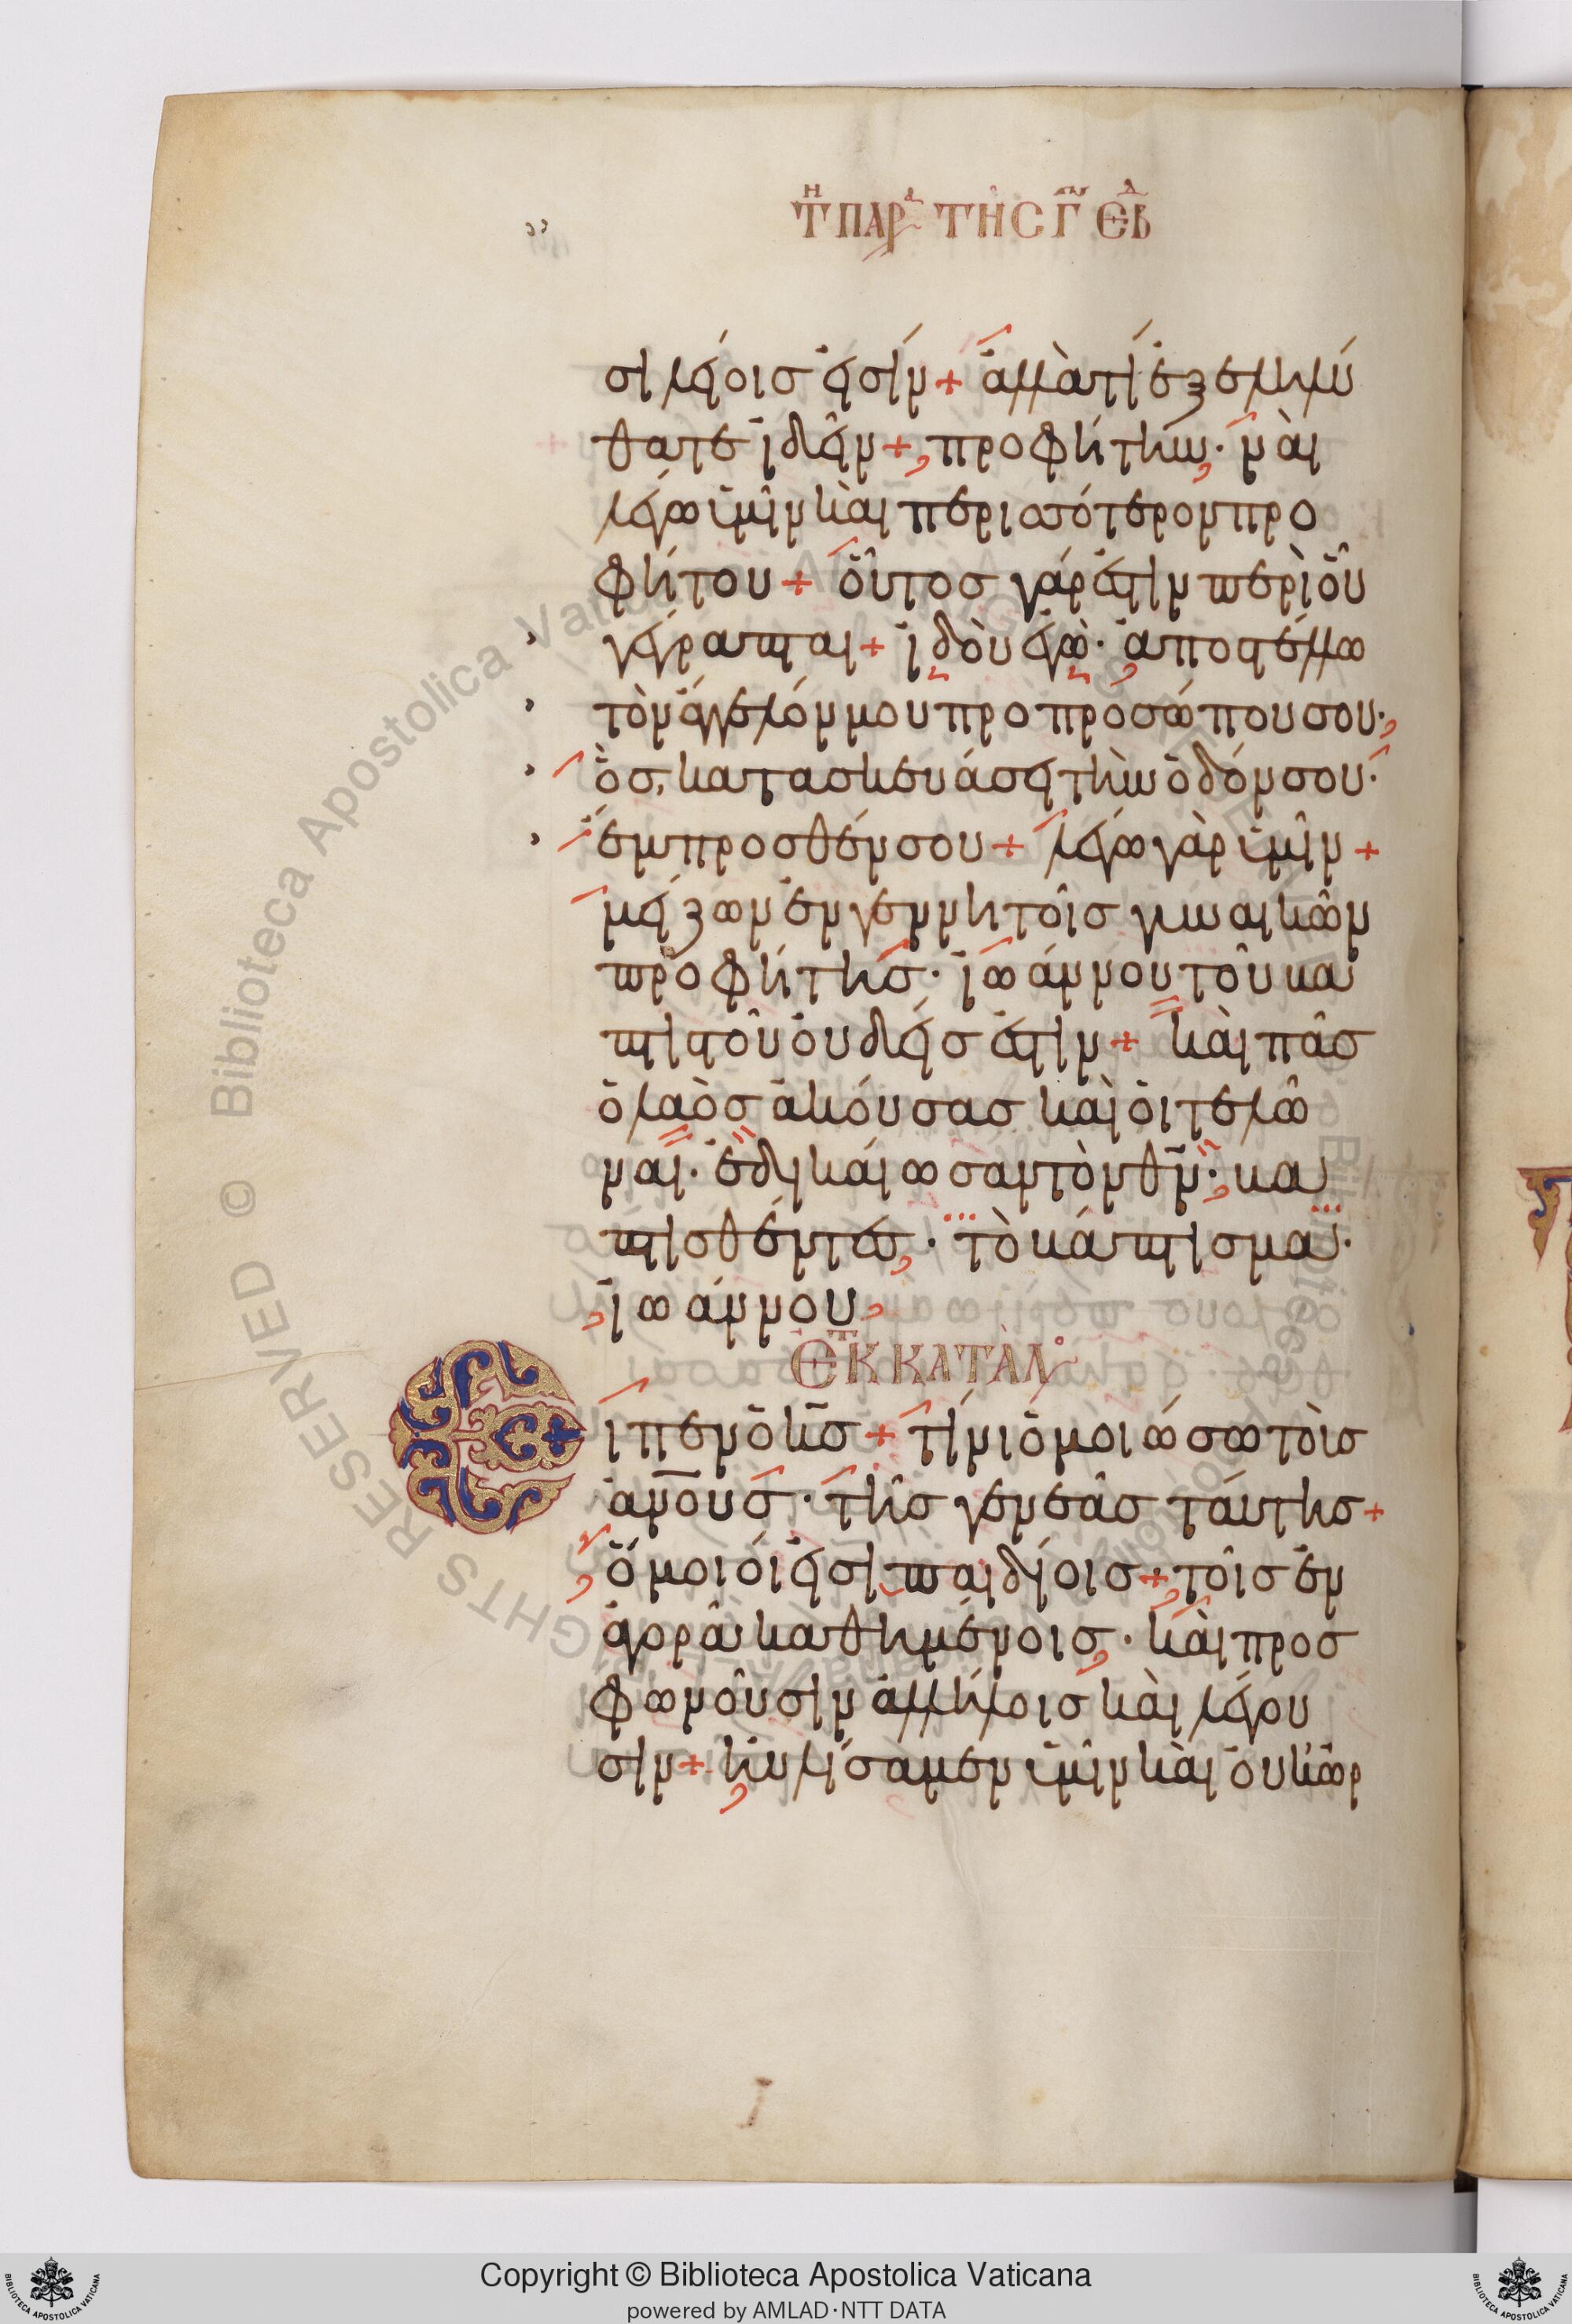 τῇ παρ τῆς γ ἑβδ
σιλείοις εἰσίν + ἀλλὰ τί ἐξεληλύ
θατε ἰδεῖν + προφήτην · ναὶ
λέγω ὑμῖν καὶ περισσότερον προ
φήτου + οὗτος γάρ ἐστιν περὶ οὗ
γέγραπται + ἰδοὺ ἐγὼ · ἀποστέλλω
τὸν ἄγγελόν μου πρὸ προσώπου σου ·
ὃς κατασκευάσει τὴν ὁδόν σου ·
ἔμπροσθέν σου + λέγω γὰρ ὑμῖν +
μείζων ἐν γεννητοῖς γυναικῶν
προφήτης · ἰωάννου τοῦ βα
πτιστοῦ οὐδείς ἐστιν + καὶ πᾶς
ὁ λαὸς ἀκούσας καὶ οἱ τελῶ
ναι · ἐδικαίωσαν τὸν θν · βα
πτισθέντες · τὸ βάπτισμα ·
ἰωάννου
ἐκ τ κατὰ λο
Εἶπεν ὁ κς + τίνι ὁμοιώσω τοὺς
ανους · τῆς γενεᾶς ταύτης +
ὅμοιοί εἰσι παιδίοις + τοῖς ἐν
ἀγορᾷ καθημένοις · καὶ προσ
φωνοῦσιν ἀλλήλοις καὶ λέγου
σιν + ηὐλίσαμεν ὑμῖν καὶ οὐκ ὠρ
Copyright © Biblioteca Apostolica Vaticana
powered by AMLAD·NTT DATA